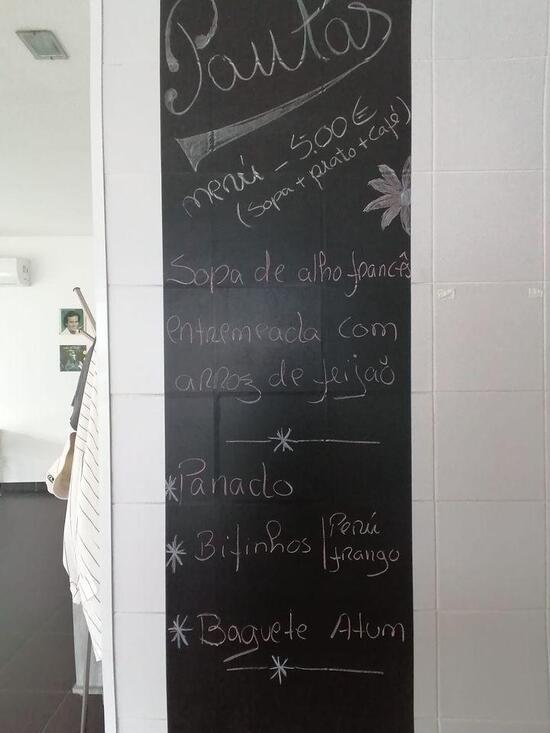 Pautas
menú - 5.00€
(sopa + prato + café)
Sopa de alho francês
entremeada com
arroz de feijão
Panado
Bifinhos | Perú
frango
Baguete Atum